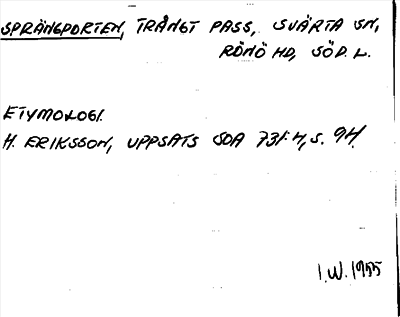 SPRÄNGPORTEN, TRÅNGT PASS, SVÄRTA SN,
RÖNÖ HD, SÖD. L.
ETYMOLOGI.
H. ERIKSSON, UPPSATS SOA 731:4, S. 94.
I.W. 1955